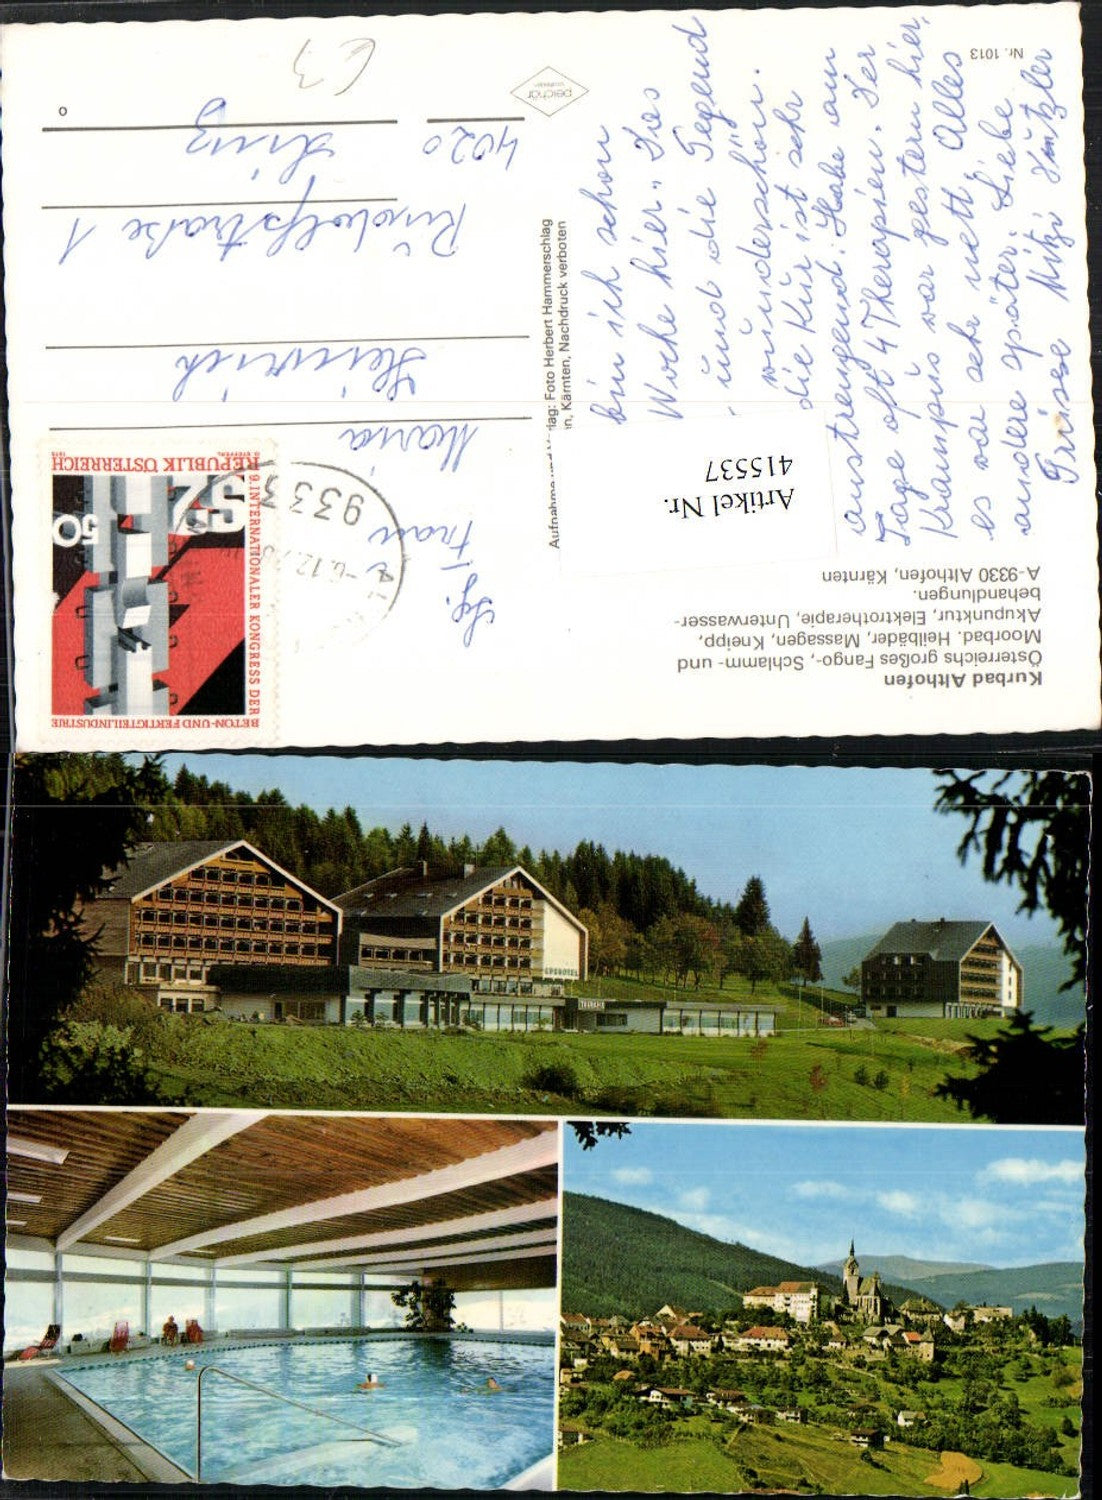 Kurbad Althofen
Österreichs großes Fango-, Schlamm- und
Moorbad. Heilbäder, Massagen, Kneipp,
Akupunktur, Elektrotherapie, Unterwasser-
behandlungen.
A-9330 Althofen, Kärnten
Artikel Nr.
415537
bin ich schon
Woche hier. Das
und die Gegend
wunderschön.
die Kur ist sehr
anstrengend. Habe am
Tage oft 4 Therapien. Der
Krampus war gestern hier,
es war sehr nett. Alles
andere später. Liebe
Grüsse Mitzi
Nr. 1013
Aufnahme und Verlag: Foto Herbert Hammerschlag
Kärnten, Nachdruck verboten
REPUBLIK ÖSTERREICH
1978
S2
50
9. INTERNATIONALER KONGRESS DER
BETON- UND FERTIGTEILINDUSTRIE
9333
-6.12.7
Frau
Maria
Heinrich
Rudolfstraße 1
4020
Linz
63